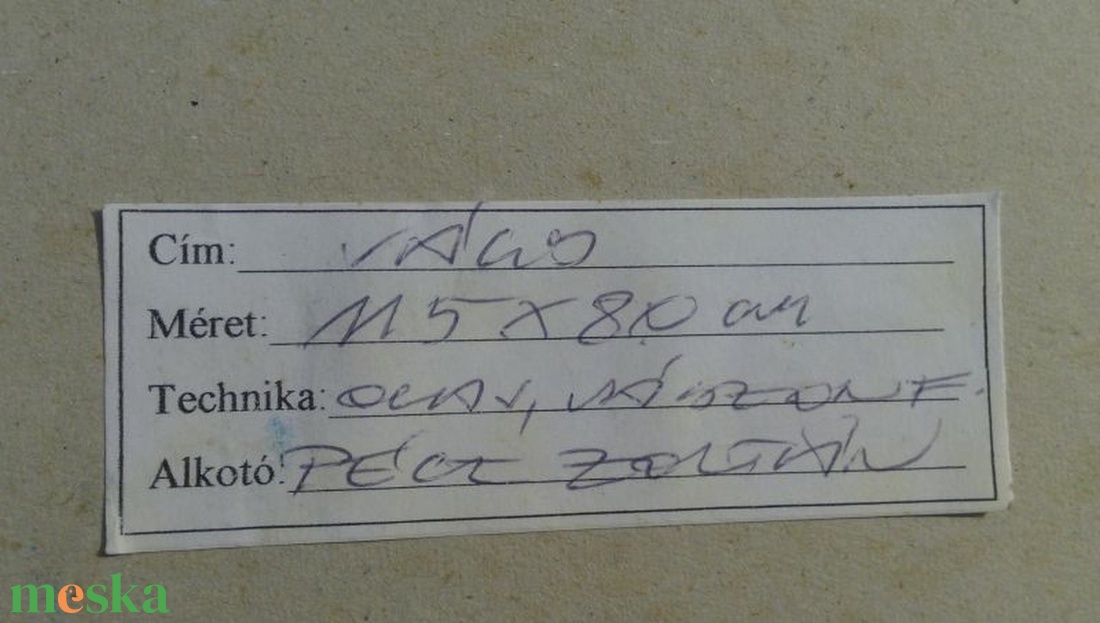 Cím: VÁGY
Méret: 115 X 80 cm
Technika: OLAJ, VÁSZON F.
Alkotó: PÉCZ ZOLTÁN
meska